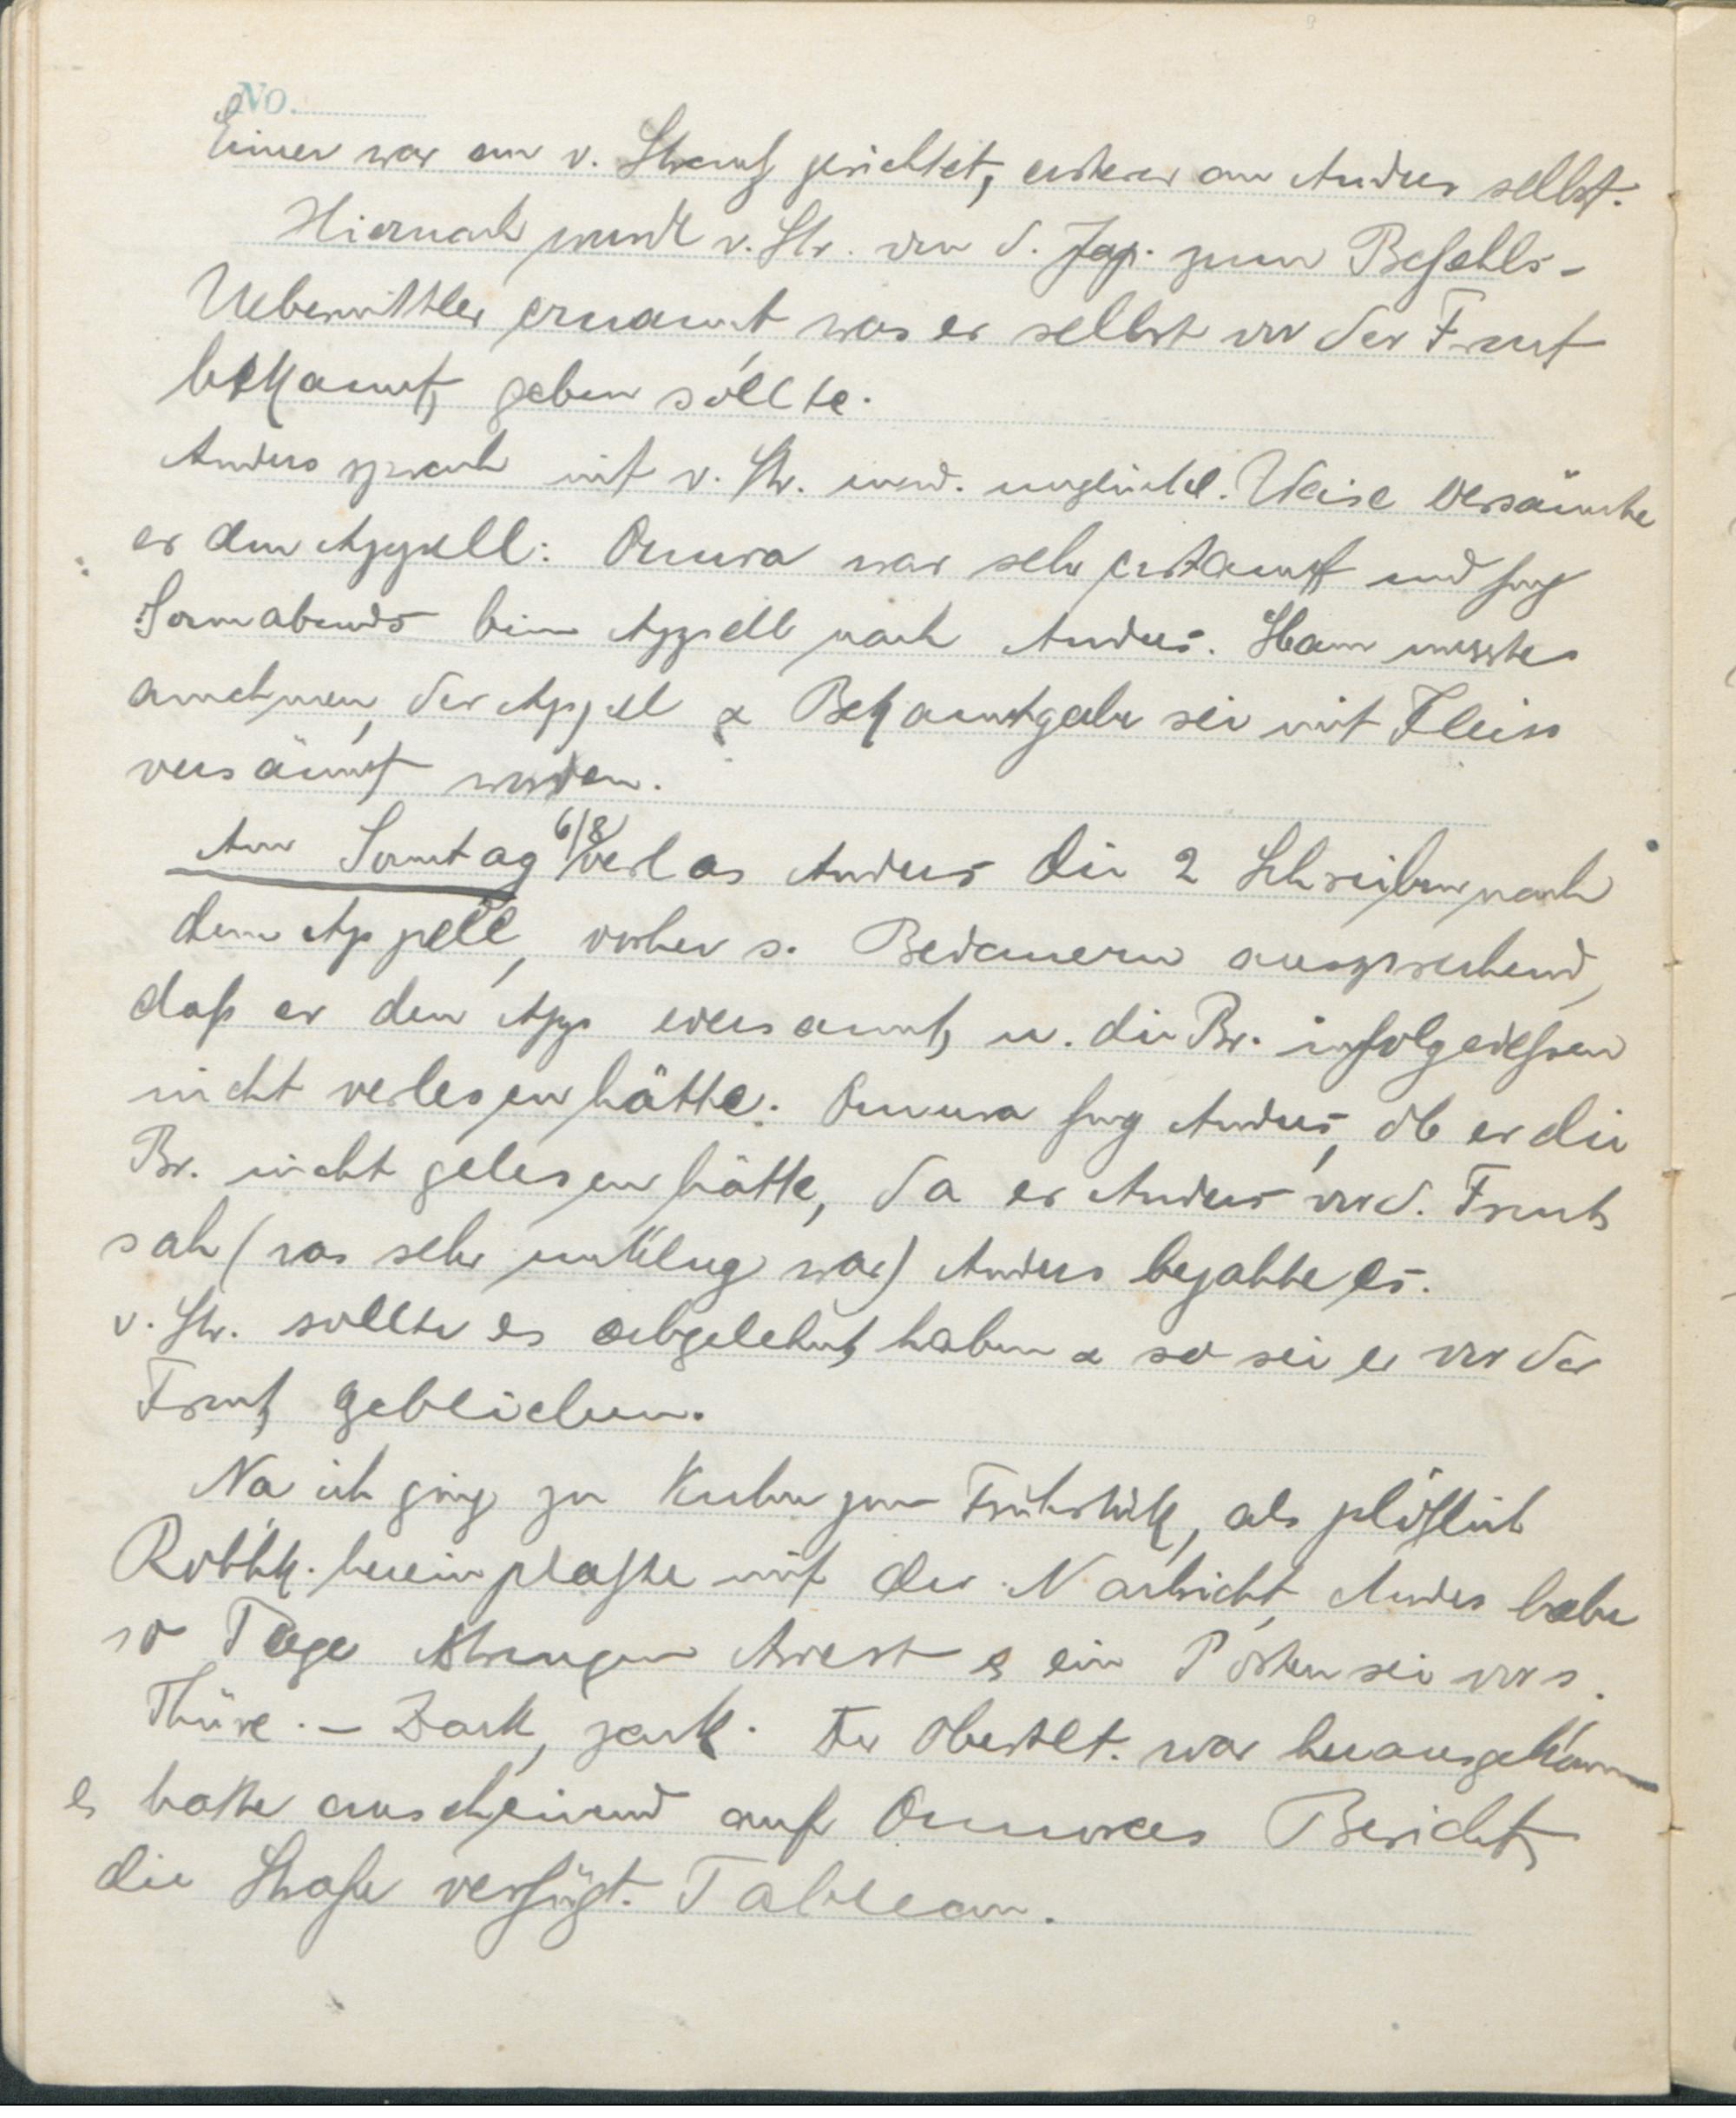 No.
Einer war an v. Strauß gerichtet, ersterer an Anders selbst.
Hiernach wurde v. Str. von d. Jap. zum Befehls-
Uebermittler ernannt was er selbst vor der Front
bekannt geben sollte.
Anders sprach mit v. Str. und. unglückl. Weise versäumte
er den Appell: Omura war sehr erstaunt und frug
Sonnabends beim Appell nach Anders. Man musste
annehmen, der Appel & Bekanntgabe sei mit Fleiss
versäumt worden.
Am Sonntag 6/8 verlas Anders die 2 Schreiben nach
dem Appell, vorher s. Bedauern aussprechend,
daß er den App versäumt u. die Br. infolgedessen
nicht verlesen hätte. Omura frug Anders, ob er die
Br. nicht gelesen hätte, da er Anders vor d. Front
sah (was sehr unklug war) Anders bejahte es.
v. Str. sollte es abgelehnt haben & so sei er vor der
Front geblieben.
Na ich ging zu Kuhn zum Frühstück, als plötzlich
Rottk. hereinplatzte mit der Nachricht, Anders habe
10 Tage strengen Arrest & ein Posten sei vor s.
Thüre. – Zack, zack. Der Oberstlt. war herausgekommen
& hatte anscheinend auf Omuras Bericht
die Strafe verfügt. Tableau.